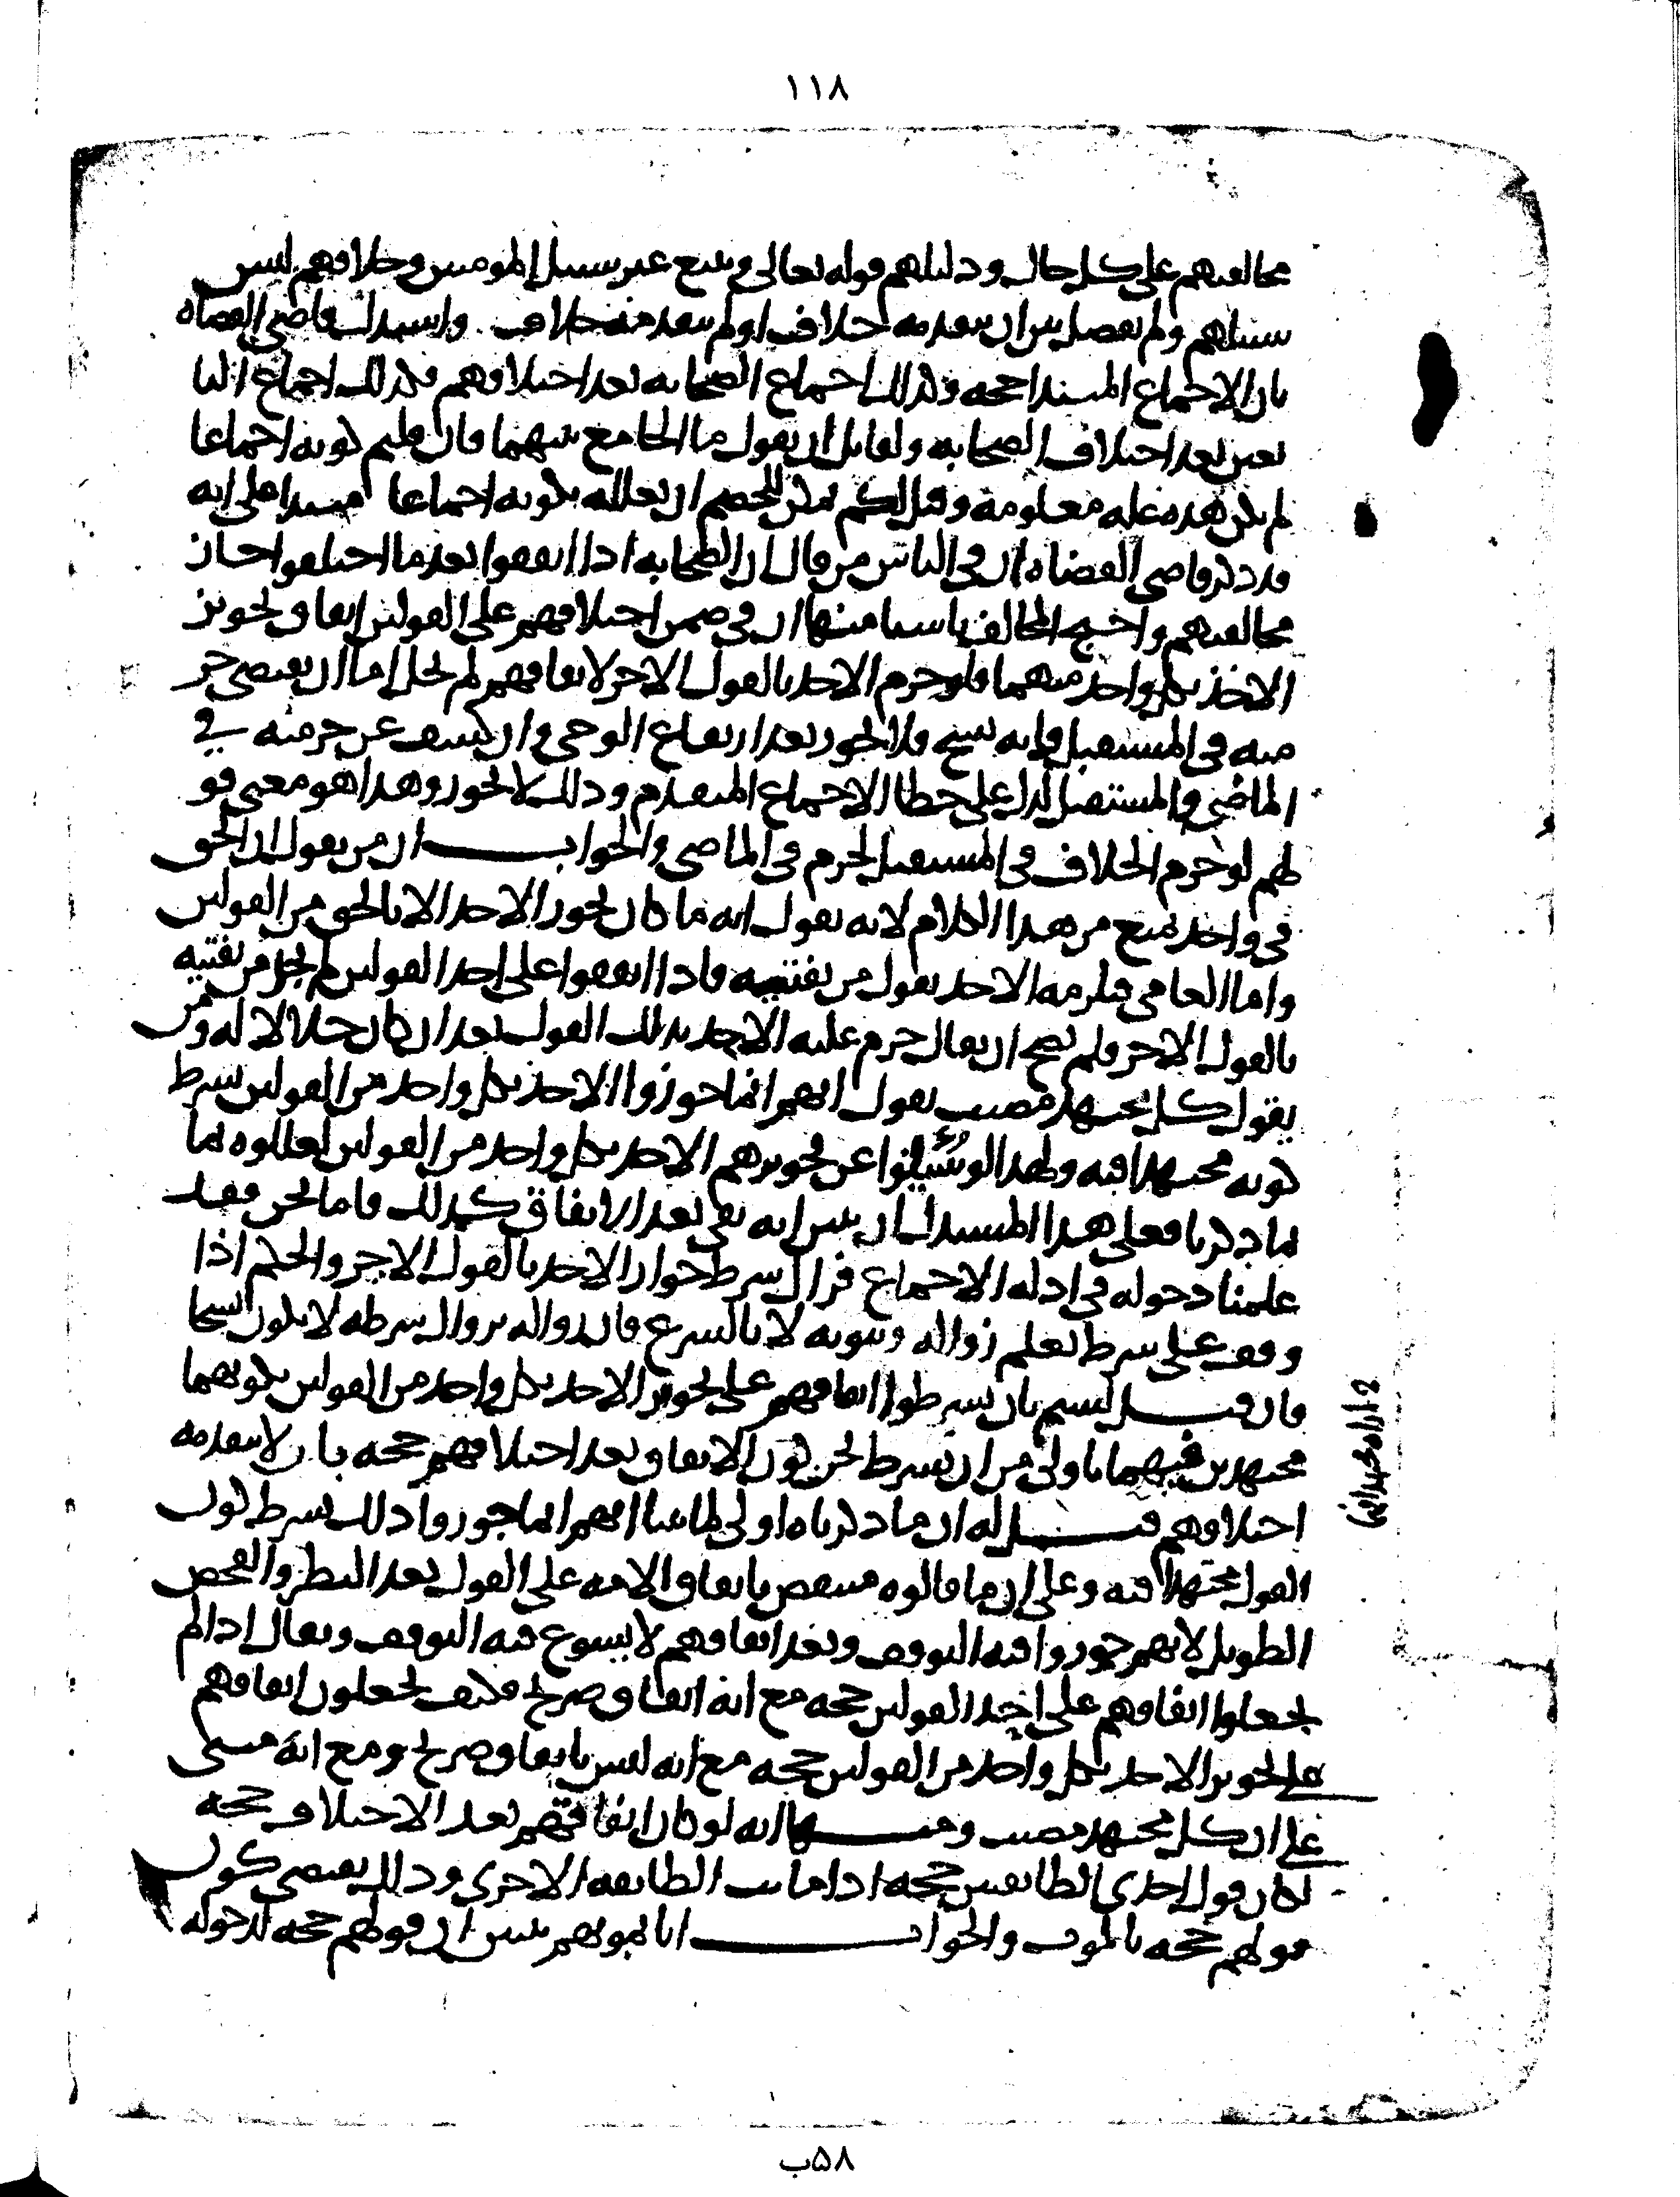 ١١٨
مخالفتهم على كل حال ودليلهم قوله تعالى ويتبع غير سبيل المومنين وخلافهم ليس
سبيلهم ولم يفصل بين ان يتقدمه خلاف او لم يتقدمه خلاف واستدل قاضي القضاه
بان الاجماع المبتدا حجه وكذلك اجماع الصحابه بعد اختلافهم فكذلك اجماع التا
بعين بعد اختلاف الصحابه ولقايل ان يقول ما الجامع بينهما فان قلتم كونه اجماعا
لم يكن هذه عله معلومة وقيل لكم يمكن للخصم ان يعلله بكونه اجماعا مبتدا على انه
قد ذكر قاضي القضاه ان في الناس من قال ان الصحابه اذا اتفقوا بعد ما اختلفوا جاز
مخالفتهم واحتج المخالف باشيا منها ان في ضمن اختلافهم على القولين اتفاق بتجويز
الاخذ بكل واحد منهما فلو حرم الاخذ بالقول الاخر لاتفاقهم لم يخل اما ان يقتضي حر
مته في المستقبل فانه نسخ ولا يجوز بعد ارتفاع الوحي وان كشف عن حرمته في
الماضي والمستقبل لدل على خطا الاجماع المتقدم وذلك لا يجوز وهذا هو معنى قو
لهم لو حرم الخلاف في المستقبل لحرم في الماضي والجواب ان من يقول ان الحق
في واحد يمنع من هذا الكلام لانه يقول انه ما كان يجوز الاخذ الا بالحق من القولين
واما العامي فيلزمه الاخذ بقول من يفتيه فاذا اتفقوا على احد القولين لم يجز من يفتيه
بالقول الاخر فلم يصح ان يقال حرم عليه الاخذ بذلك القول بعد ان كان حلالا له ومن
يقول كل مجتهد مصيب يقول انهم انما جوزوا الاخذ بكل واحد من القولين بشرط
كونه مجتهدا فيه ولهذا لو سئلوا عن تجويزهم الاخذ بكل واحد من القولين لعللوه بما
ما ذكرنا فعلى هذا المستدل ان يبين انه بقي بعد الاتفاق كذلك فاما نحن فقد
علمنا دخوله في ادله الاجماع فزال شرط جواز الاخذ بالقول الاخر والحكم اذا
وقف على شرط يعلم زواله وثبوته لا بالشرع فان زواله بزوال شرطه لا يكون نسخا
فان قيل لستم بان تشرطوا اتفاقهم على تجويز الاخذ بكل واحد من القولين بكونهما
مجتهدين فيهما باولى من ان نشرط نحن كون الاتفاق بعد اختلافهم حجه بان لا يتقدمه
اختلافهم قيل له ان ما ذكرناه اولى لما بينا انهم انما جوزوا ذلك بشرط كون
القول مجتهدا فيه وعلى ان ما قالوه منتقض باتفاق الامه على القول بعد النظر والفحص
الطويل لانهم جوزوا فيه التوقف وبعد اتفاقهم لا يسوغ فيه التوقف ويقال اذا لم
تجعلوا اتفاقهم على احد القولين حجه مع انه اتفاق صريح فكيف تجعلون اتفاقهم
على تجويز الاخذ بكل واحد من القولين حجه مع انه ليس باتفاق صريح ومع انه مبني
على ان كل مجتهد مصيب ومنها انه لو كان اتفاقهم بعد الاختلاف حجه
لكان قول احدى الطائفتين حجه اذا ماتت الطايفه الاخرى وذلك يقتضي كون
قولهم حجه بالموت والجواب انا بموتهم نتبين ان قولهم حجه لدخوله
٥٨ب